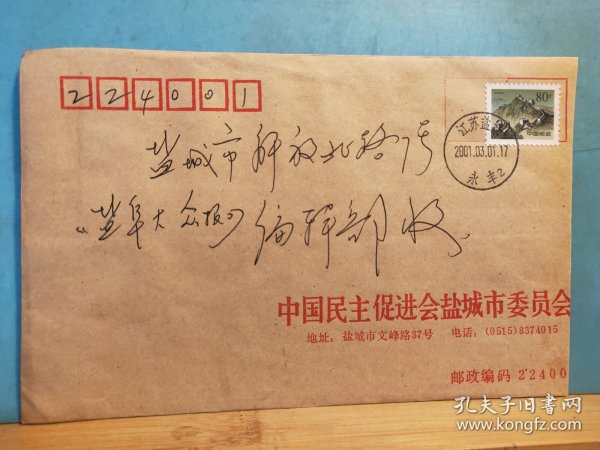 224001
80分
中国邮政
江苏盐城
2001.03.01.17
永丰2
盐城市解放北路
《盐阜大众报》编辑部 收
中国民主促进会盐城市委员会
地址：盐城市文峰路37号 电话：(0515)8374015
邮政编码 22400
孔夫子旧书网
www.kongfz.com